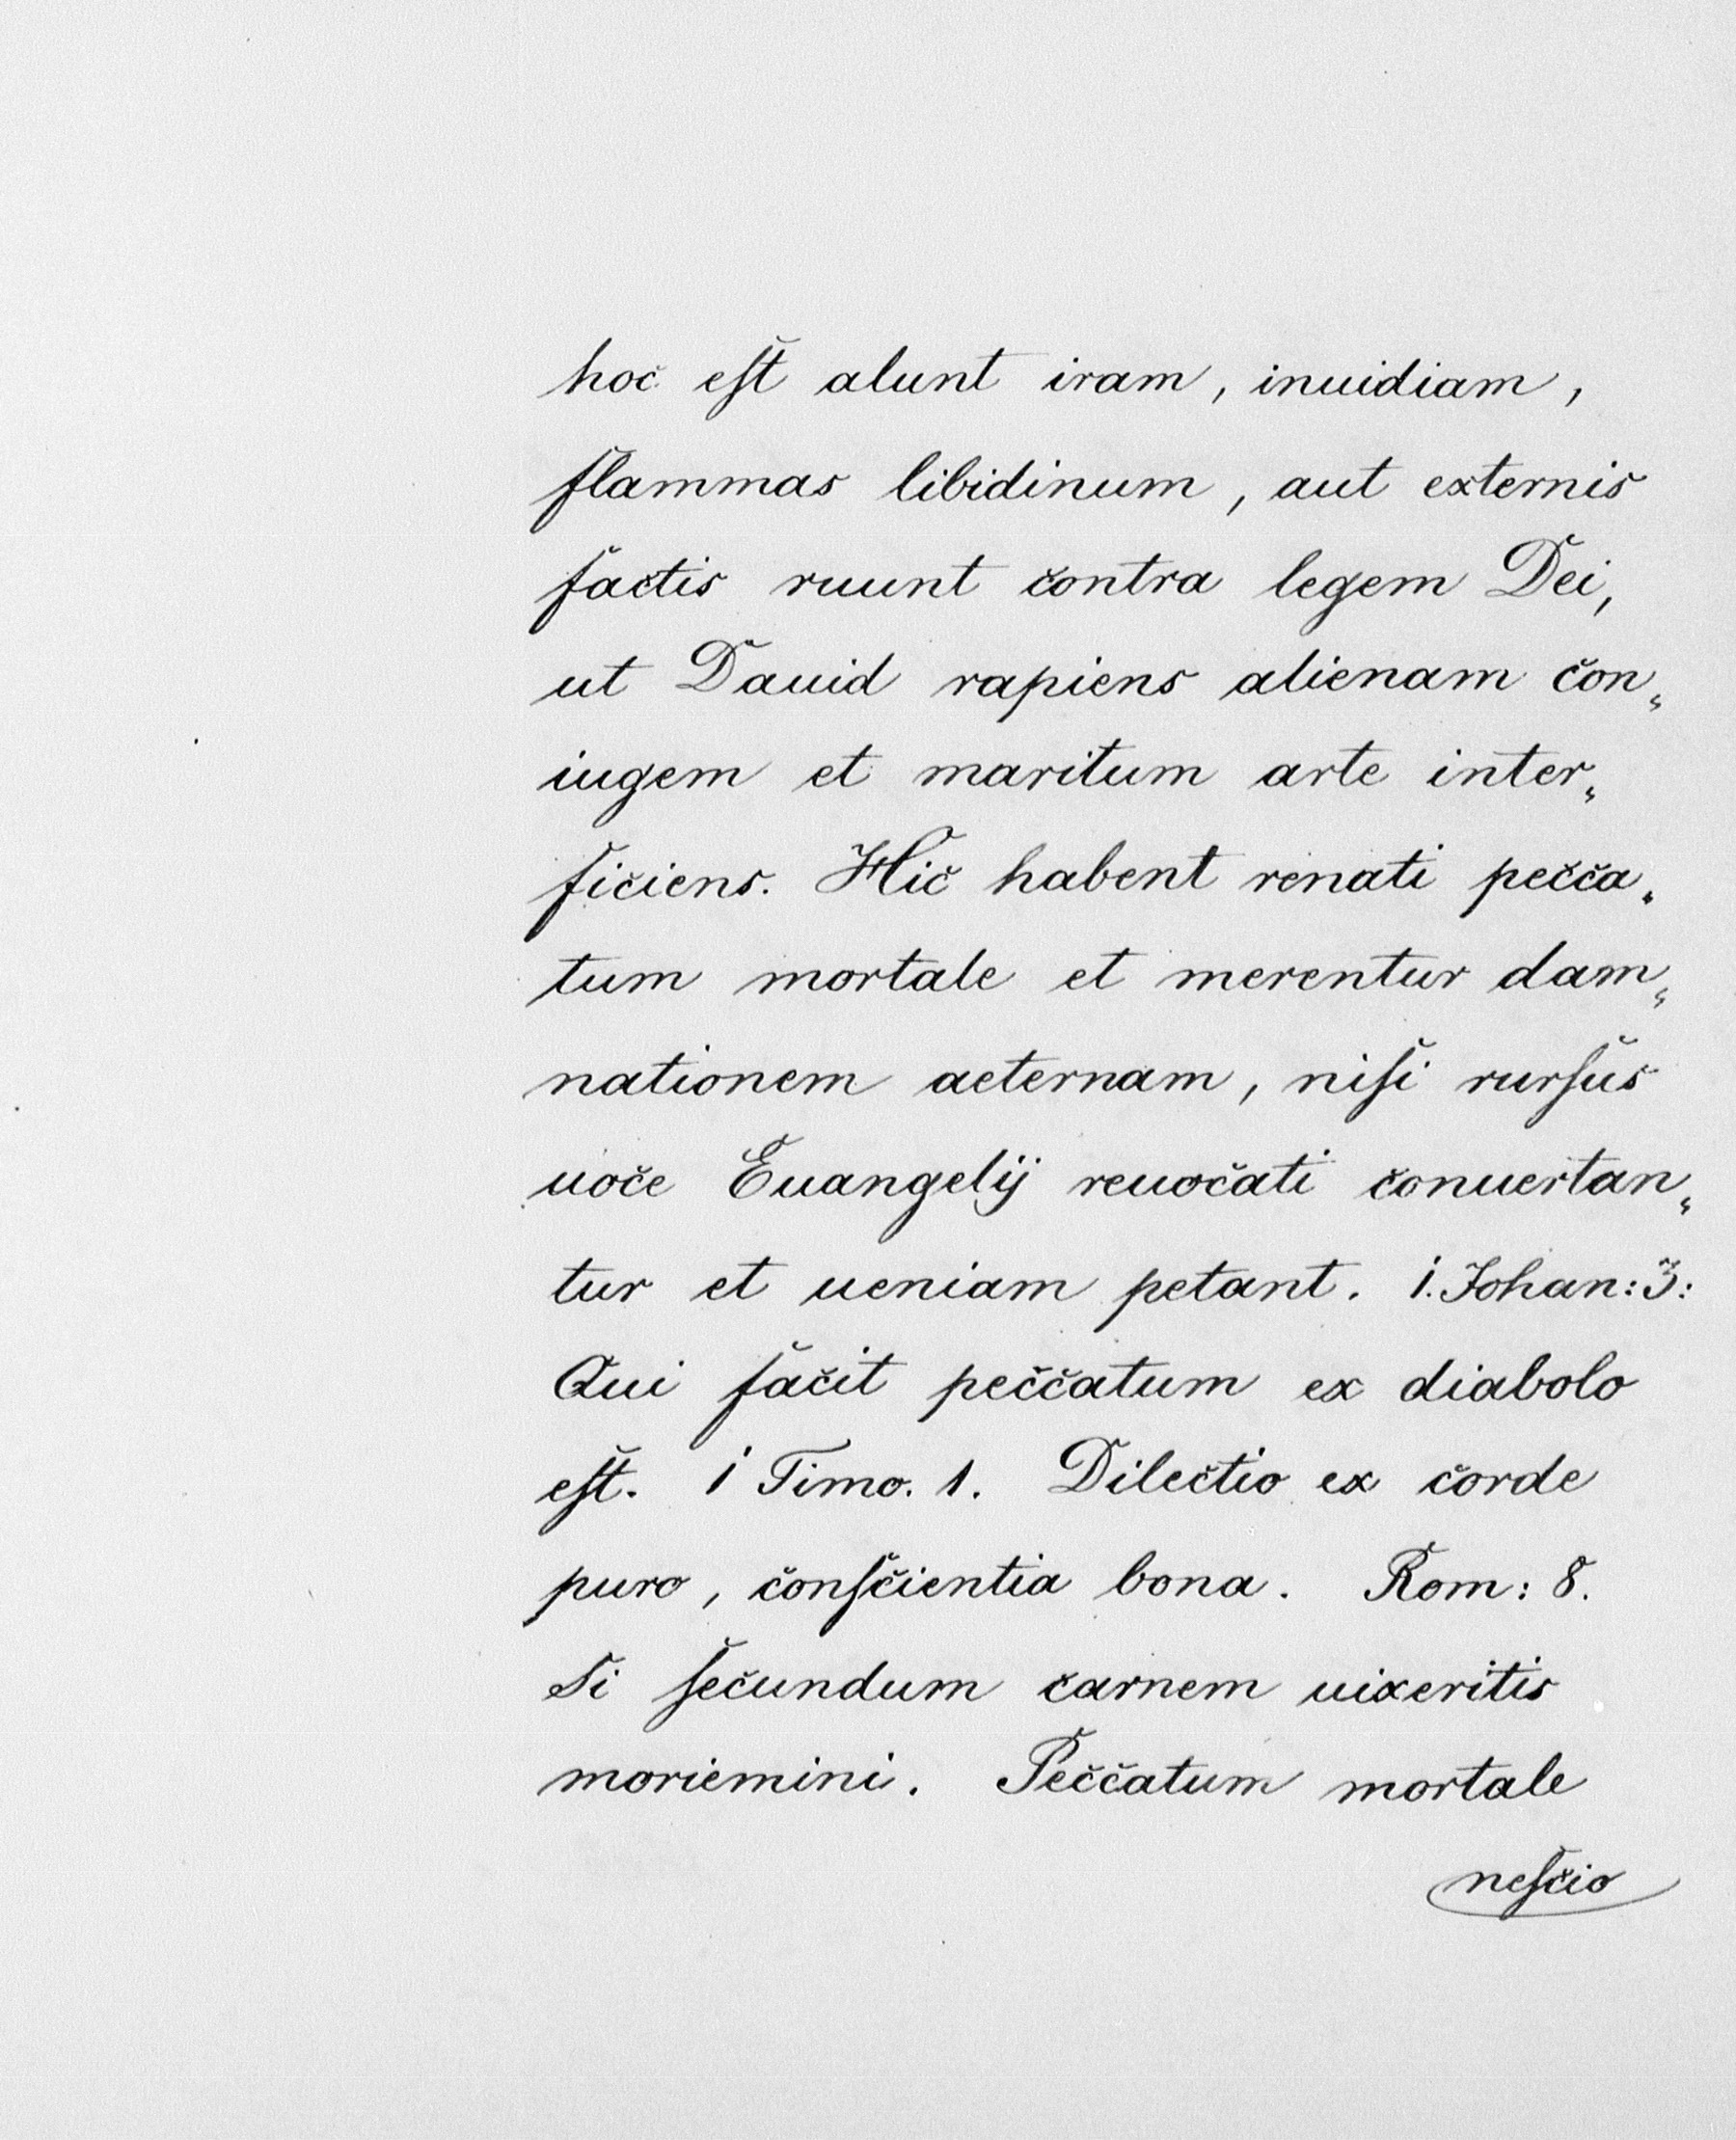 hoc eſt alunt iram, inuidiam,
flammas libidinum, aut externis
factis ruunt contra legem Dei,
ut Dauid rapiens alienam con„
iugem et maritum arte inter„
ficiens. Hic habent renati pecca„
tum mortale et merentur dam„
nationem aeternam, niſi rurſus
uoce Euangelij reuocati conuertan„
tur et ueniam petant. 1. Johan: 3:
Qui facit peccatum ex diabolo
eſt. 1 Timo. 1. Dilectio ex corde
puro, conſcientia bona. Rom: 8.
Si ſecundum carnem uixeritis
moriemini. Peccatum mortale
neſcio